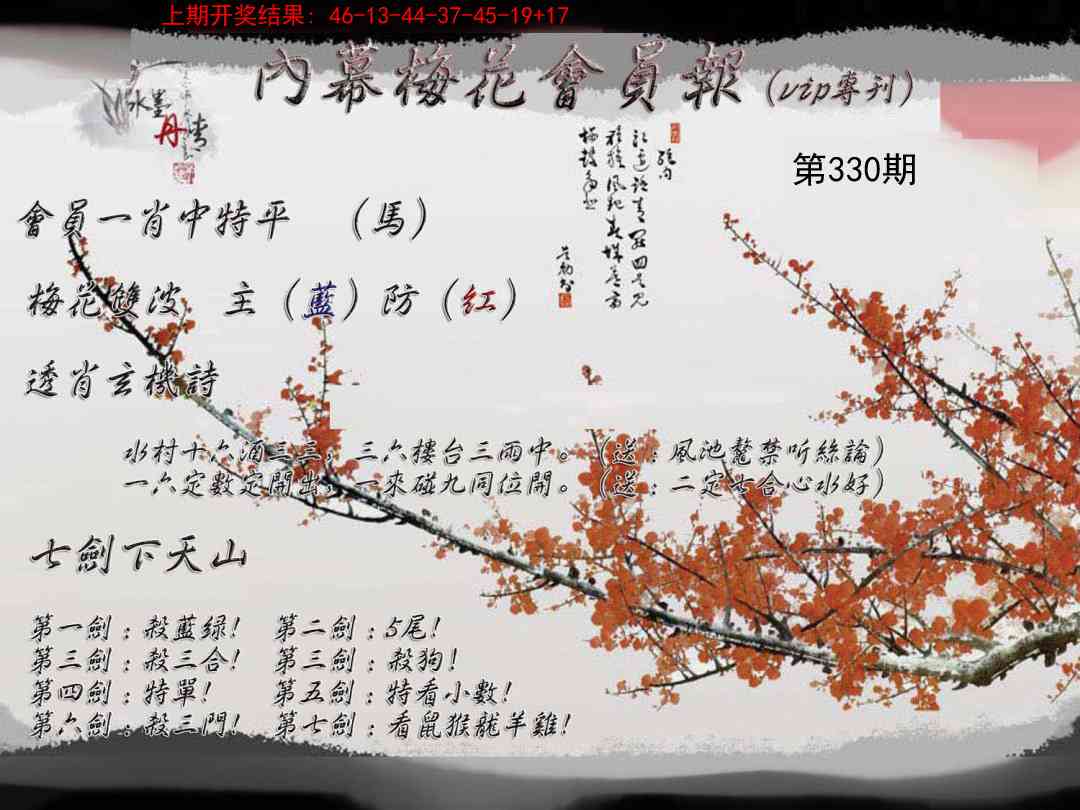 上期开奖结果: 46-13-44-37-45-19+17
內幕梅花會員報(vip專刊)
水墨
丹青
第330期
會員一肖中特平 (馬)
梅花雙波 主(藍)防(紅)
透肖玄機詩
水村十六酒三三，三六樓台三雨中。(送：風池鰲禁听絲論)
一六定數定開出，一來碰九同位開。(送：二定七合心水好)
七劍下天山
第一劍：殺藍绿! 第二劍：5尾!
第三劍：殺三合! 第三劍：殺狗!
第四劍：特單! 第五劍：特看小數!
第六劍：殺三門! 第七劍：看鼠猴龍羊雞!